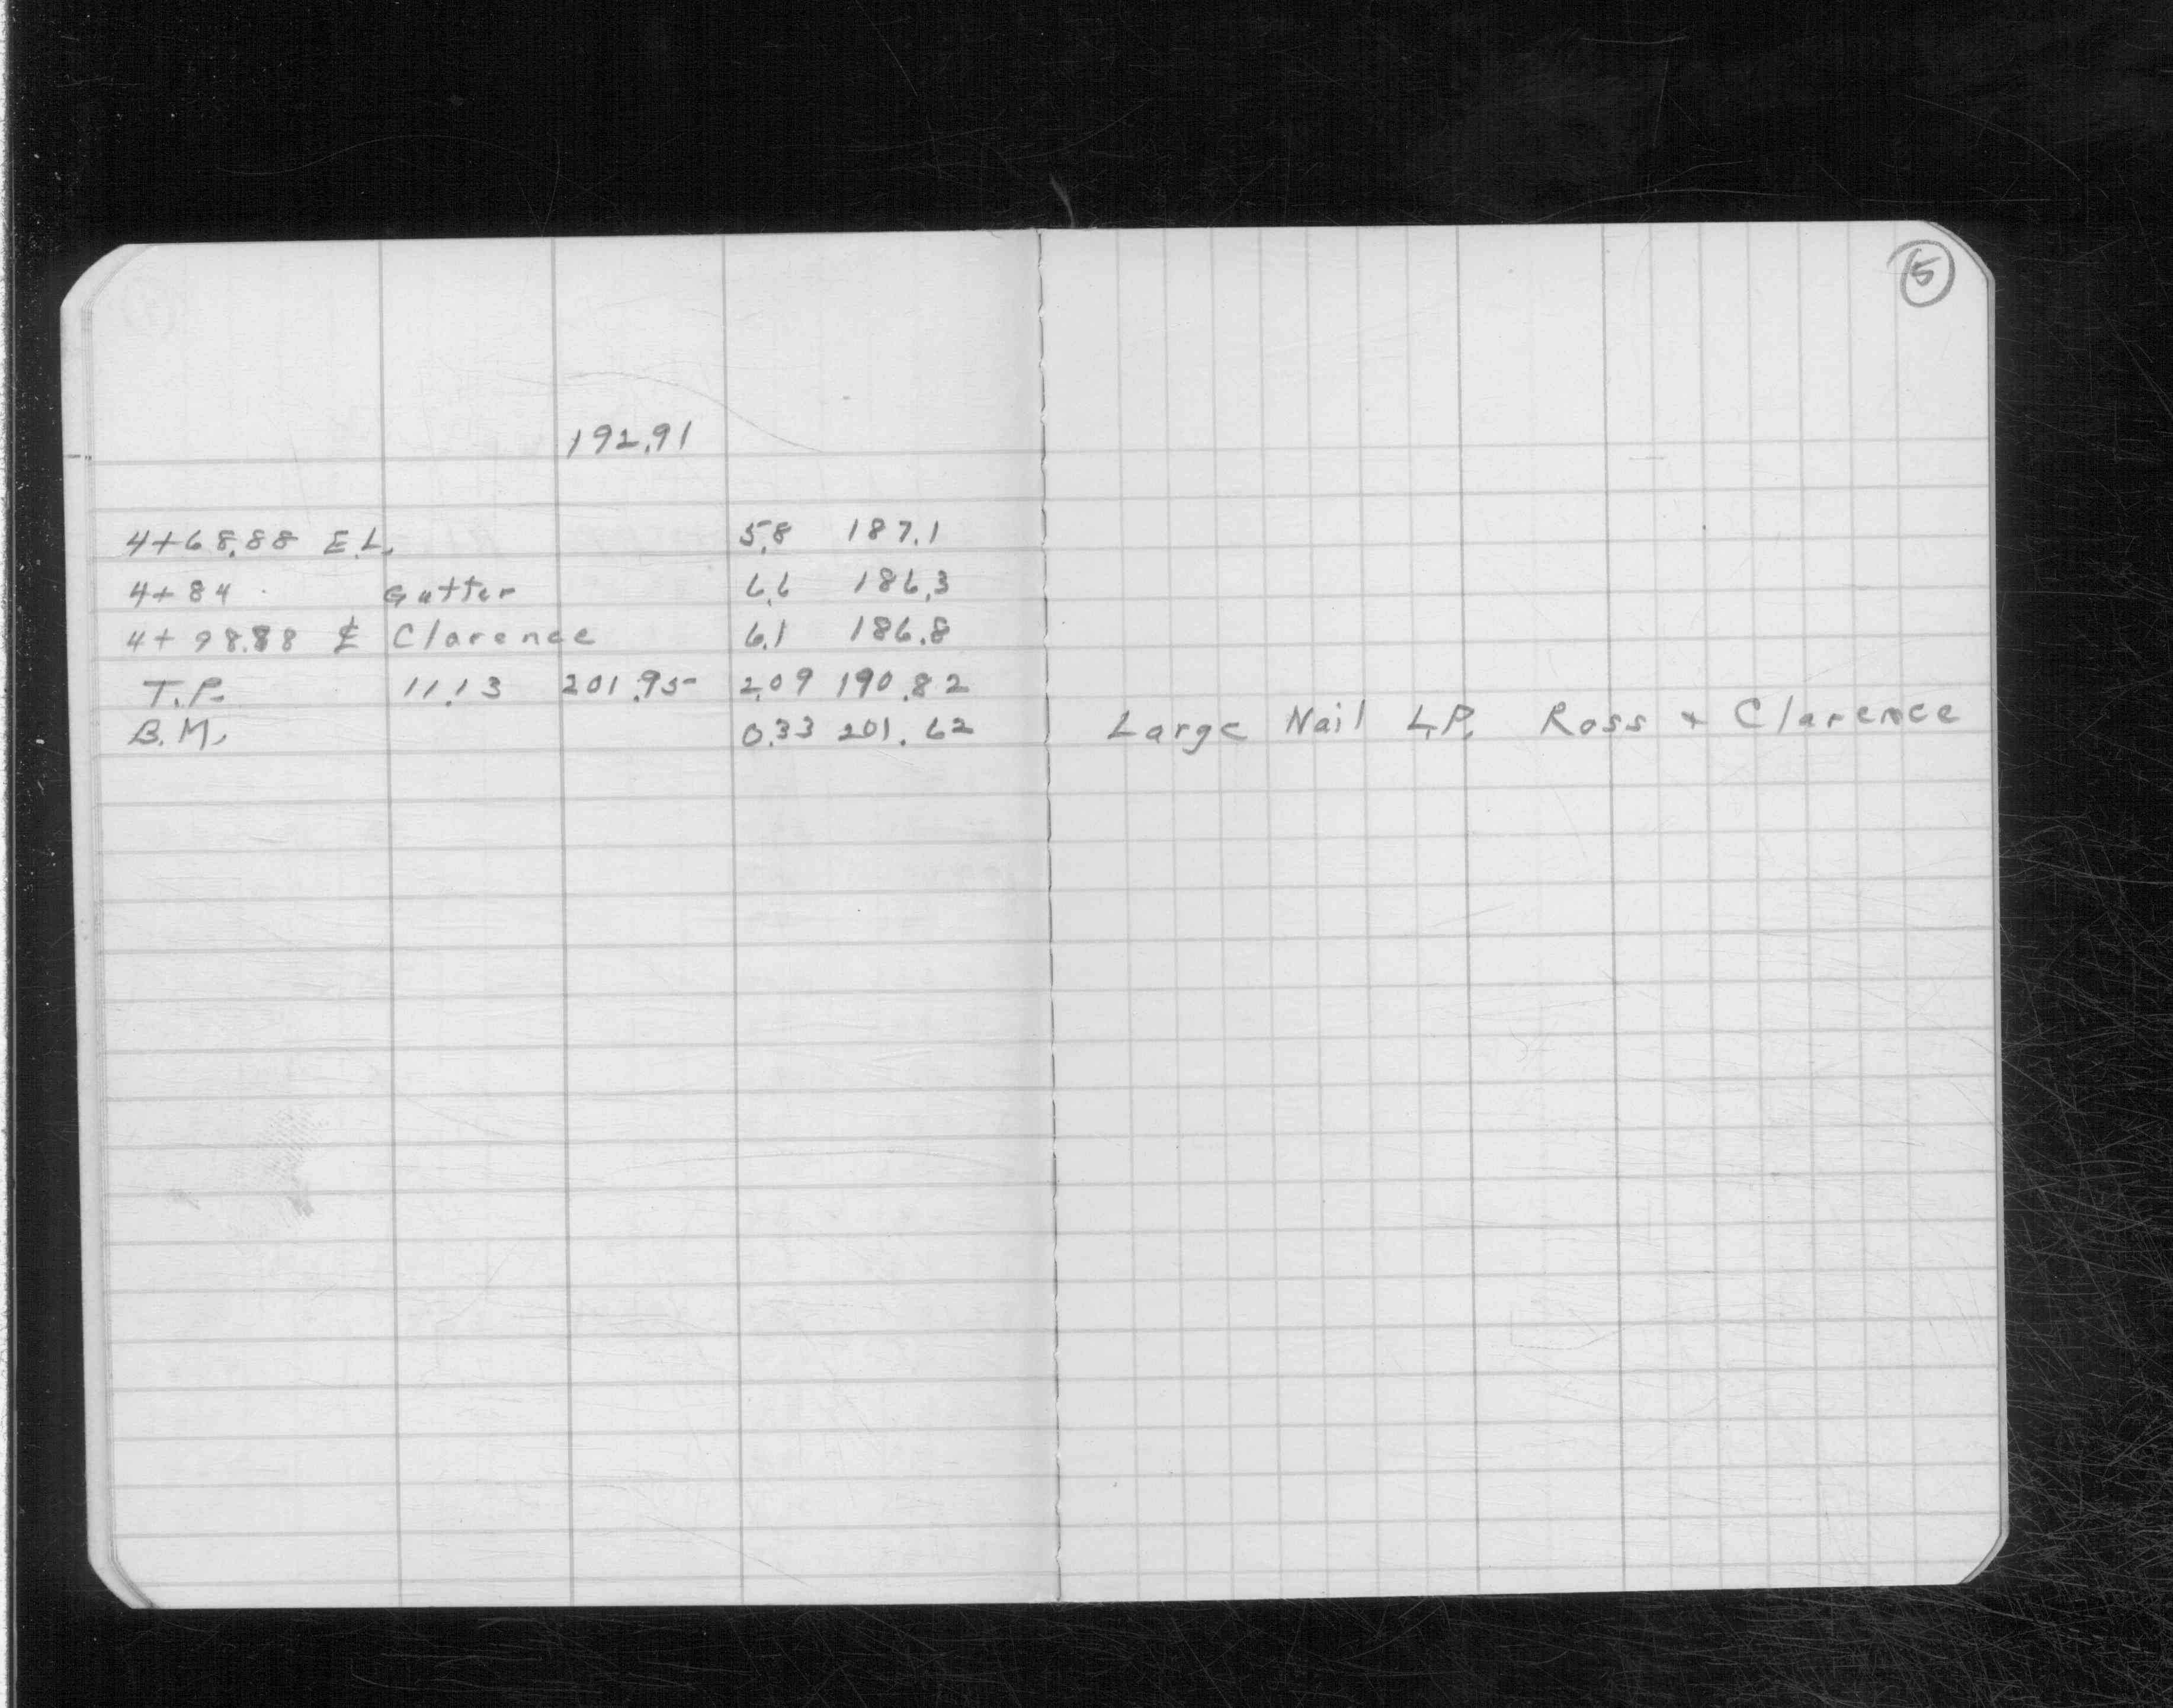 5
192.91
4+68.88 E.L. 5.8 187.1
4+84 Gutter 6.6 186.3
4+98.88 ℄ Clarence 6.1 186.8
T.P. 11.13 201.95 2.09 190.82
B.M. 0.33 201.62 Large Nail L.P. Ross + Clarence